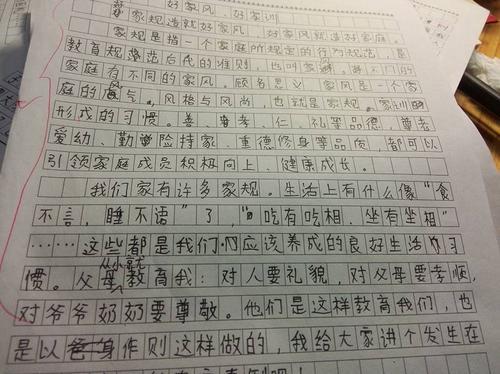 好家风 好家训
家规造就好家风，好家风就造好家庭。
家规是指一个家庭所规定的行为规范，是
教育规范后代的准则，也叫家。不同的
家庭有不同的家风。顾名思义，家风是一个家
庭的风气，风格与风尚，也就是家规、家训
形成的习惯。善、孝、仁、礼等品德，尊老
爱幼、勤险持家、重德修身等品质，都可以
引领家庭成员积极向上、健康成长。
我们家有许多家规。生活上有什么像“食
不言，睡不语”了，“吃有吃相、坐有坐相”
……这些都是我们应该养成的良好生活习
惯。父母从小就教育我：对人要礼貌，对父母要孝顺，
对爷爷奶奶要尊敬。他们是这样教育我们，也
是以身作则这样做的，我给大家讲个发生在